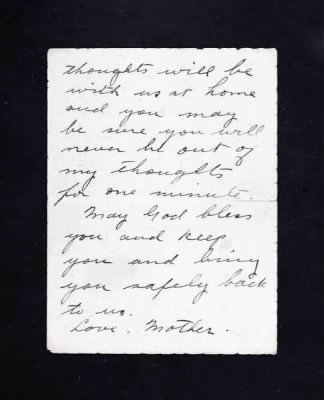 thoughts will be
with us at home
and you may
be sure you will
never be out of
my thoughts
for one minute.
May God bless
you and keep
you and bring
you safely back
to us.
Love. Mother.